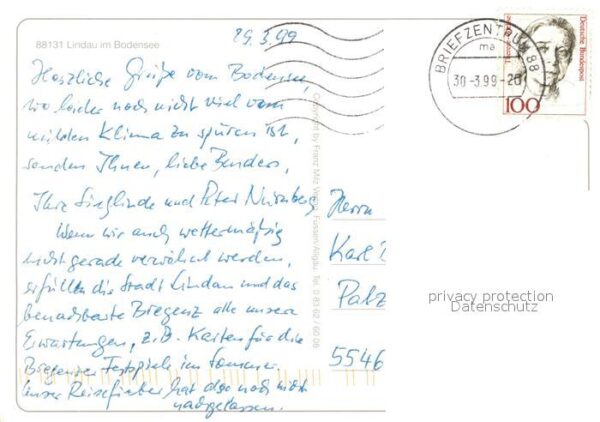 29.3.99
88131 Lindau im Bodensee
Herzliche Grüße vom Bodensee,
wo leider noch nicht viel vom
milden Klima zu spüren ist,
senden Ihnen, liebe Benders,
Ihre Sieglinde und Peter Nürnberg
Wenn wir auch wettermäßig
nicht gerade verwöhnt werden,
erfüllen die Stadt Lindau und das
benachbarte Bregenz alle unsere
Erwartungen, z.B. Karten für die
Bregenzer Festspiele im Sommer.
Unser Reisefieber hat also noch nicht
nachgelassen.
Copyright by Franz Milz Verlag, Füssen/Allgäu, Tel. 0 83 62 / 60 06
BRIEFZENTRUM 88
ma
30-3.99-20
Deutsche Bundespost
100
Herrn
Karl
Palz
5546
privacy protection
Datenschutz